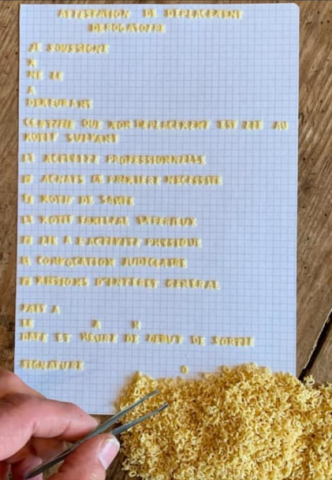 ATTESTATION DE DEPLACEMENT
DEROGATOIRE
JE SOUSSIGNE
M
NE LE
A
DEMEURANT
CERTIFIE QUE MON DEPLACEMENT EST LIE AU
MOTIF SUIVANT
ACTIVITE PROFESSIONNELLE
ACHATS DE PREMIERE NECESSITE
MOTIF DE SANTE
MOTIF FAMILIAL IMPERIEUX
LIE A L'ACTIVITE PHYSIQUE
CONVOCATION JUDICIAIRE
MISSIONS D'INTERET GENERAL
FAIT A
LE A H
DATE ET HEURE DE DEBUT DE SORTIE
SIGNATURE